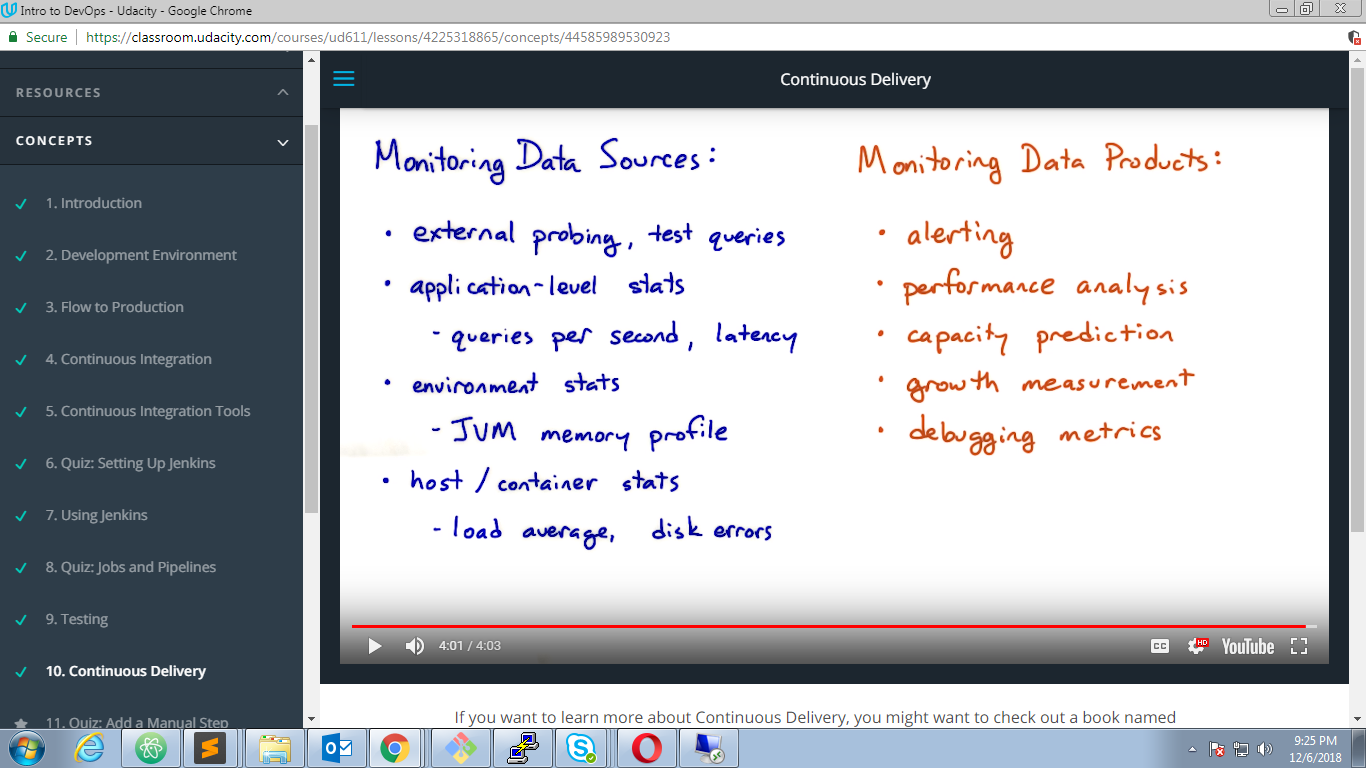 Intro to DevOps - Udacity - Google Chrome
Secure
https://classroom.udacity.com/courses/ud611/lessons/4225318865/concepts/44585989530923
RESOURCES
CONCEPTS
1. Introduction
2. Development Environment
3. Flow to Production
4. Continuous Integration
5. Continuous Integration Tools
6. Quiz: Setting Up Jenkins
7. Using Jenkins
8. Quiz: Jobs and Pipelines
9. Testing
10. Continuous Delivery
11. Quiz: Add a Manual Step
Continuous Delivery
Monitoring Data Sources:
• external probing, test queries
• application-level stats
- queries per second, latency
• environment stats
- JVM memory profile
• host / container stats
- load average, disk errors
Monitoring Data Products:
• alerting
• performance analysis
• capacity prediction
• growth measurement
• debugging metrics
4:01 / 4:03
CC
HD
YouTube
If you want to learn more about Continuous Delivery, you might want to check out a book named
9:25 PM
12/6/2018